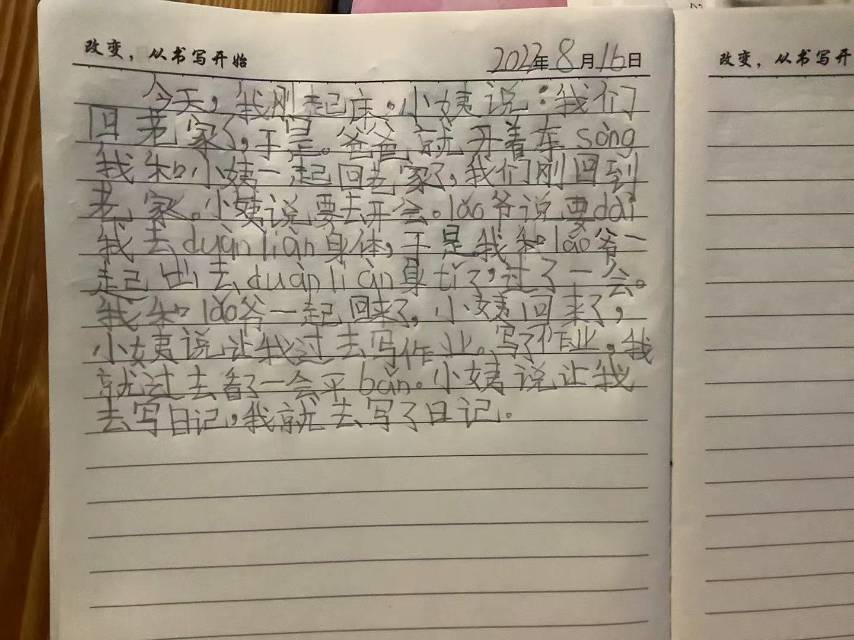 改变，从书写开始
2022年8月16日
今天，我刚起床。小姨说：我们
回老家了，于是。爸爸就开着车sòng
我和小姨一起回老家了，我们刚回到
老家。小姨说要去开会。lǎo爷说要dài
我去duànliàn身体，于是我和lǎo爷一
起出去duànliàn身tǐ了，过了一会。
我和lǎo爷一起回来了，小姨回来了，
小姨说让我过去写作业。写了作业，我
就过去看了一会平bǎn。小姨说让我
去写日记，我就去写了日记。
改变，从书写开